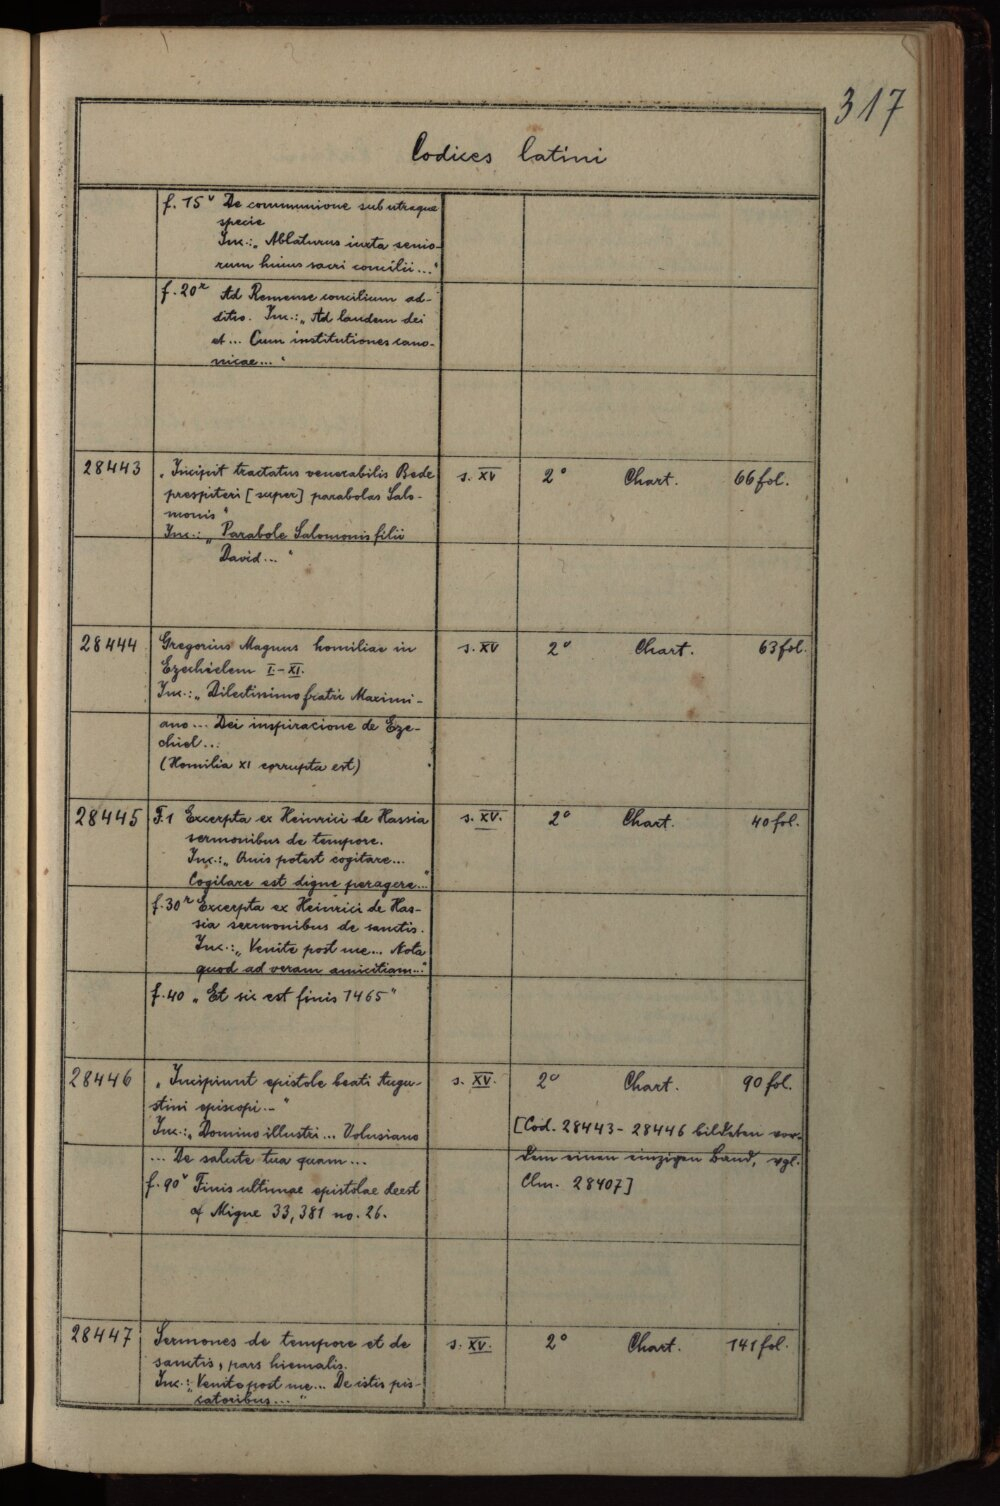 317
Codices latini
f. 15v De communione sub utraque
specie
Inc.: „Ablaturus iuxta senio-
rum huius sacri concilii..."
f. 20r Ad Remense concilium ad-
ditio. Inc.: „Ad laudem dei
et... Cum institutiones cano-
nicae..."
28443 „Incipit tractatus venerabilis Bede s. XV 2° Chart. 66 fol.
prespiteri [super] parabolas Salo-
monis"
Inc.: „Parabole Salomonis filii
David..."
28444 Gregorius Magnus homiliae in s. XV 2° Chart. 63 fol.
Ezechielem I-XI.
Inc.: „Dilectissimo fratri Maximi-
ano... Dei inspiracione de Eze-
chiel...
(Homilia XI corrupta est)
28445 F. 1 Excerpta ex Heinrici de Hassia s. XV. 2° Chart. 40 fol.
sermonibus de tempore.
Inc.: „Quis potest cogitare...
Cogitare est digne peragere..."
f. 30r Excerpta ex Heinrici de Has-
sia sermonibus de sanctis.
Inc.: „Venite post me... Nota
quod ad veram amicitiam..."
f. 40 „Et sic est finis 1465"
28446 „Incipiunt epistole beati Augu- s. XV. 2° Chart. 90 fol.
stini episcopi..."
Inc.: „Domino illustri... Volusiano
... De salute tua quam...
f. 90v Finis ultimae epistolae deest
cf Migne 33, 381 no. 26.
[Cod. 28443-28446 bildeten vor-
dem einen einzigen Band, vgl.
Clm. 28407]
28447 Sermones de tempore et de s. XV. 2° Chart. 141 fol.
sanctis, pars hiemalis.
Inc.: „Venite post me... De istis pis-
catoribus..."